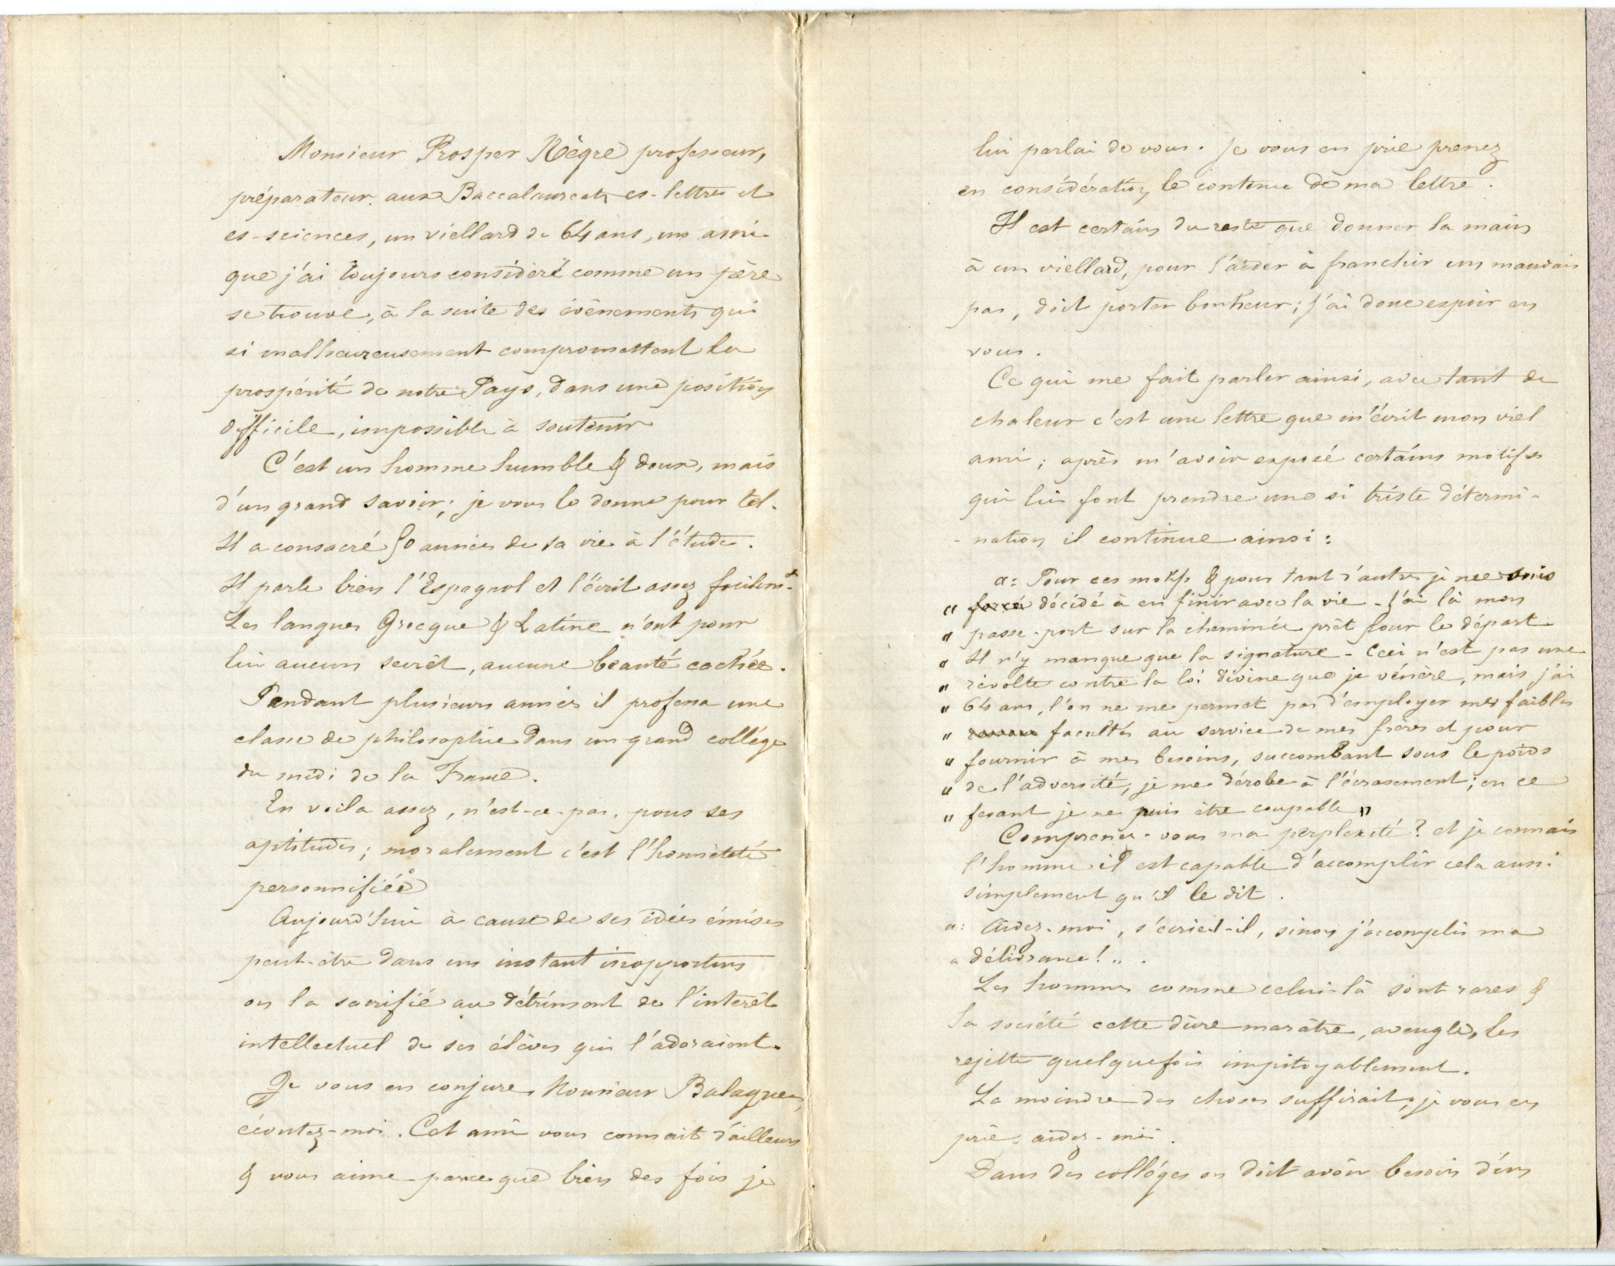 Monsieur Prosper Nègre professeur,
préparateur aux Baccalaureats es-lettres et
es-sciences, un viellard de 64 ans, un ami
que j'ai toujours considéré comme un père
se trouve, à la suite des évènements qui
si malheureusement compromettent la
prospérité de notre Pays, dans une position
difficile, impossible à soutenir
C'est un homme humble & doux, mais
d'un grand savoir; je vous le donne pour tel.
Il a consacré 50 années de sa vie à l'étude.
Il parle bien l'Espagnol et l'écrit assez facilemt.
Les langues Grecque & Latine n'ont pour
lui aucun secrèt, aucune beauté cachée.
Pendant plusieurs années il professa une
classe de philosophie dans un grand collège
du midi de la France.
En voila assez, n'est-ce-pas, pour ses
aptitudes; moralement c'est l'honnêteté
personnifiée
Aujourd'hui à cause de ses idées émises
peut-être dans un instant inopportun
on la sacrifié au détriment de l'interèt
intellectuel de ses élèves qui l'adoraient.
Je vous en conjure, Monsieur Balaguer,
écoutez-moi. Cet ami vous connait d'ailleurs
& vous aime parce que bien des fois je
lui parlai de vous. Je vous en prie prenez
en considération le contenu de ma lettre.
Il est certain du reste que donner la main
à un viellard, pour l'aider à franchir un mauvais
pas, doit porter bonheur; j'ai donc espoir en
vous.
Ce qui me fait parler ainsi, avec tant de
chaleur c'est une lettre que m'écrit mon viel
ami; après m'avoir exposé certains motifs
qui lui font prendre une si triste détermi-
-nation il continue ainsi:
a: Pour ces motifs & pour tant d'autres je me suis
" forcé décidé à en finir avec la vie - J'ai là mon
" passe-port sur la cheminée prêt pour le départ
" Il n'y manque que la signature - Ceci n'est pas une
" révolte contre la loi divine que je vénère, mais j'ai
" 64 ans, l'on ne me permet pas d'employer mes faibles
" facultés au service de mes frères et pour
" fournir à mes besoins, succombant sous le poids
" de l'adversité, je me dérobe à l'écrasement; en ce
" fesant je ne puis être coupable "
Comprenez-vous ma perplexité? et je connais
l'homme il est capable d'accomplir cela aussi
simplement qu'il le dit.
a: Aidez-moi, s'écrie-t-il, sinon j'accomplis ma
" délivrance!...
Les hommes comme celui-là sont rares &
la société cette dure marâtre, aveugle, les
rejette quelquefois impitoyablement.
La moindre des choses suffirait, je vous en
prie, aidez-moi.
Dans des collèges on doit avoir besoin d'un